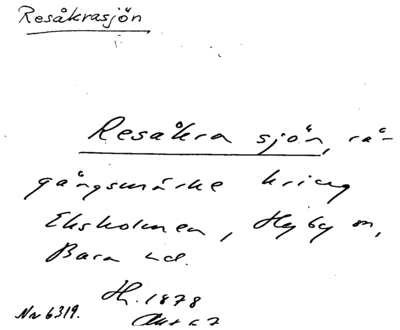 Resåkrasjön
Resåkra sjön, rå-
gångsmärke kring
Eksholmen, Hyby sn,
Bara hd.
Hh. 1878
Nr 6319.